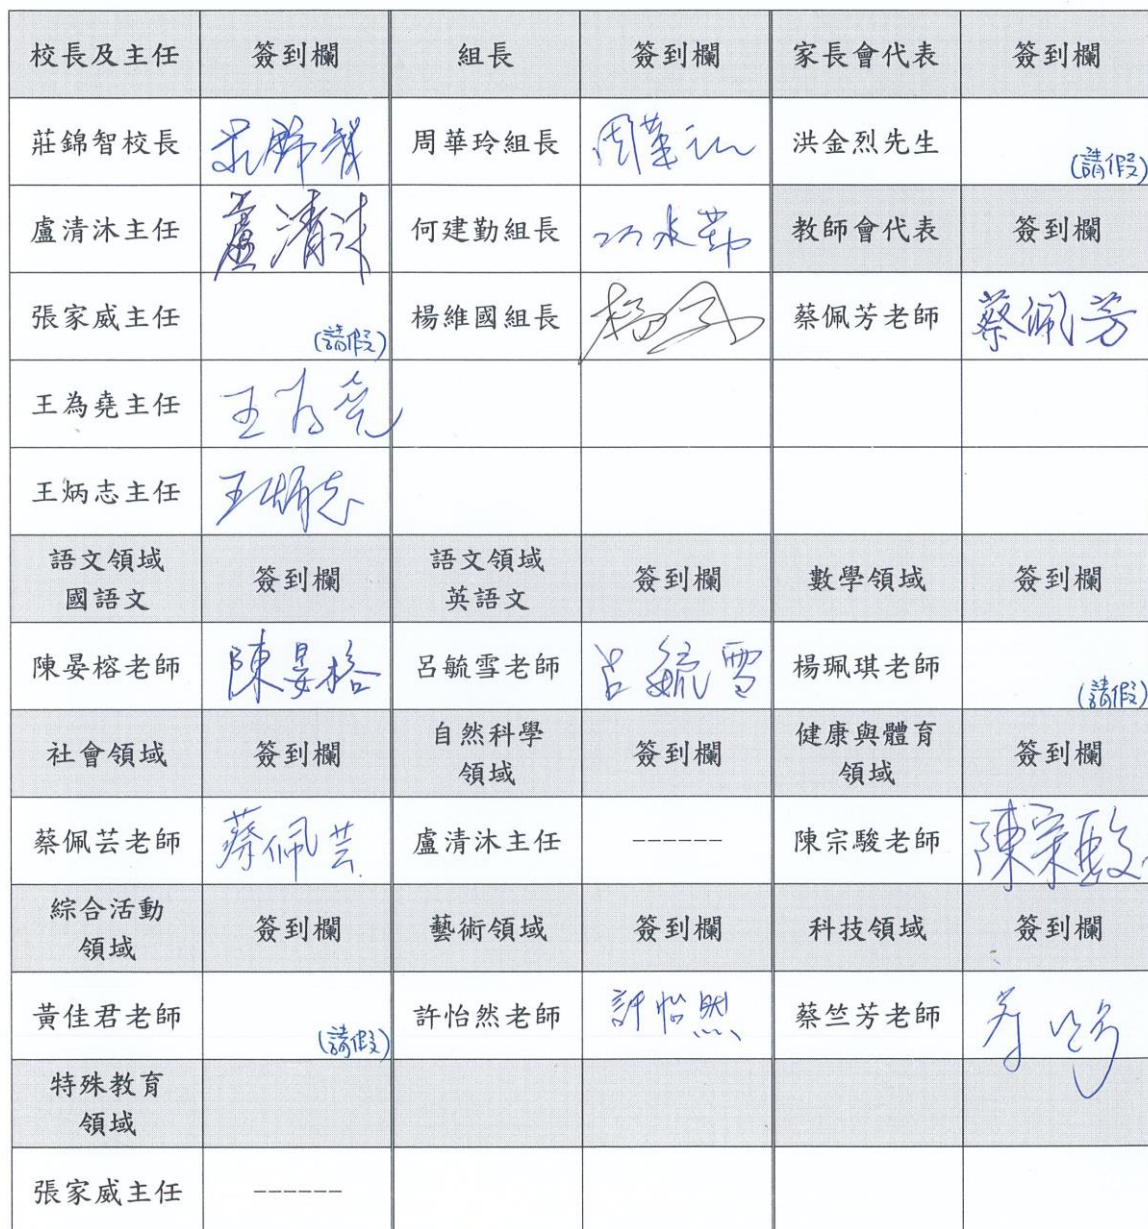 校長及主任 簽到欄 組長 簽到欄 家長會代表 簽到欄
莊錦智校長 莊錦智 周華玲組長 周華玲 洪金烈先生 (請假)
盧清沐主任 盧清沐 何建勤組長 何建勤 教師會代表 簽到欄
張家威主任 (請假) 楊維國組長 蔡佩芳老師 蔡佩芳
王為堯主任 王為堯
王炳志主任 王炳志
語文領域
國語文 簽到欄 語文領域
英語文 簽到欄 數學領域 簽到欄
陳晏榕老師 陳晏榕 呂毓雪老師 呂毓雪 楊珮琪老師 (請假)
社會領域 簽到欄 自然科學
領域 簽到欄 健康與體育
領域 簽到欄
蔡佩芸老師 蔡佩芸 盧清沐主任 ------ 陳宗駿老師 陳宗駿
綜合活動
領域 簽到欄 藝術領域 簽到欄 科技領域 簽到欄
黃佳君老師 (請假) 許怡然老師 許怡然 蔡竺芳老師
特殊教育
領域
張家威主任 ------